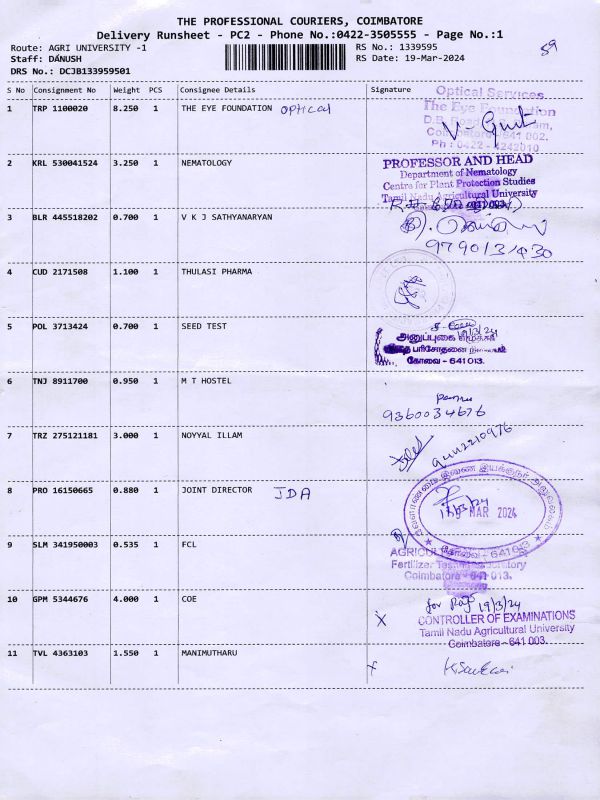 THE PROFESSIONAL COURIERS, COIMBATORE
Delivery Runsheet - PC2 - Phone No.:0422-3505555 - Page No.:1
Route: AGRI UNIVERSITY -1
RS No.: 1339595
59
Staff: DANUSH
RS Date: 19-Mar-2024
DRS No.: DCJB133959501
S No Consignment No Weight PCS Consignee Details Signature
1 TRP 1100020 8.250 1 THE EYE FOUNDATION optical
Optical Services
The Eye Foundation
Coimbatore - 641 002.
Ph : 0422 - 4242010
2 KRL 530041524 3.250 1 NEMATOLOGY
PROFESSOR AND HEAD
Department of Nematology
Centre for Plant Protection Studies
Tamil Nadu Agricultural University
3 BLR 445518202 0.700 1 V K J SATHYANARYAN
4 CUD 2171508 1.100 1 THULASI PHARMA
5 POL 3713424 0.700 1 SEED TEST
19/3/24
கோவை - 641 013.
6 TNJ 8911700 0.950 1 M T HOSTEL
9360034676
7 TRZ 275121181 3.000 1 NOYYAL ILLAM
8 PRO 16150665 0.880 1 JOINT DIRECTOR JDA
MAR 2024
கோவை - 641 013
9 SLM 341950003 0.535 1 FCL
Fertilizer Testing Laboratory
Coimbatore - 641 013.
10 GPM 5344676 4.000 1 COE
19/3/24
CONTROLLER OF EXAMINATIONS
Tamil Nadu Agricultural University
Coimbatore - 641 003.
11 TVL 4363103 1.550 1 MANIMUTHARU